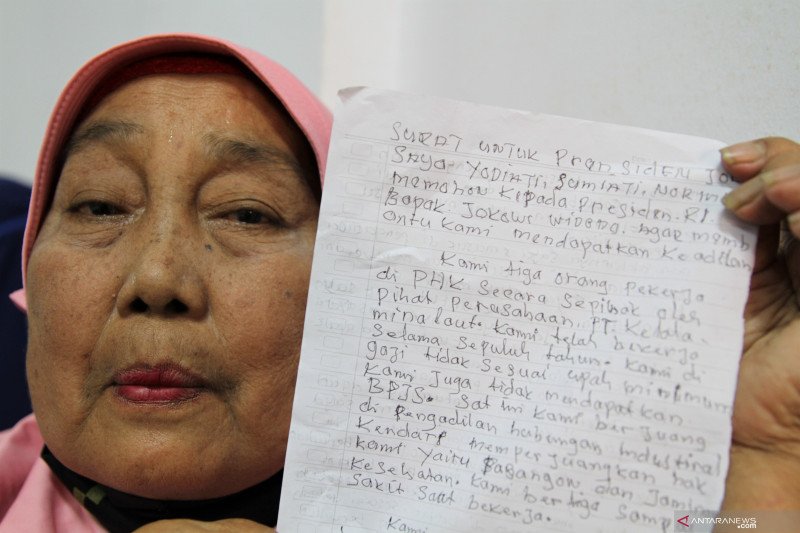 SURAT UNTUK PranSIDEN JO
Saya YODIATI. SAMIATI. NORM
memohon Kepada Presiden. RI.
Bapak. Jokowi WIDODO. agar memb
ontu Kami mendapatkan Keadilan
Kami tiga orang pekerja
di PHK Secara Sepihak oleh
pihat perusahaan. PT. Kelola-
mina laut. Kami telah bekerja
Selama Sepuluh tahun. Kami di
gaji tidak Sesuai upah minimum
Kami Juga tidak mendapatkan
BPJS. Sat ini Kami berjuang
di Pengadilan hubungan industrial
Kendari memperjuangkan hak
Kami Yaitu Pasangon dan Jamin
Kesehatan. Kami bertiga Samp
Sakit Saat bekerja.
Kami
ANTARANEWS.com